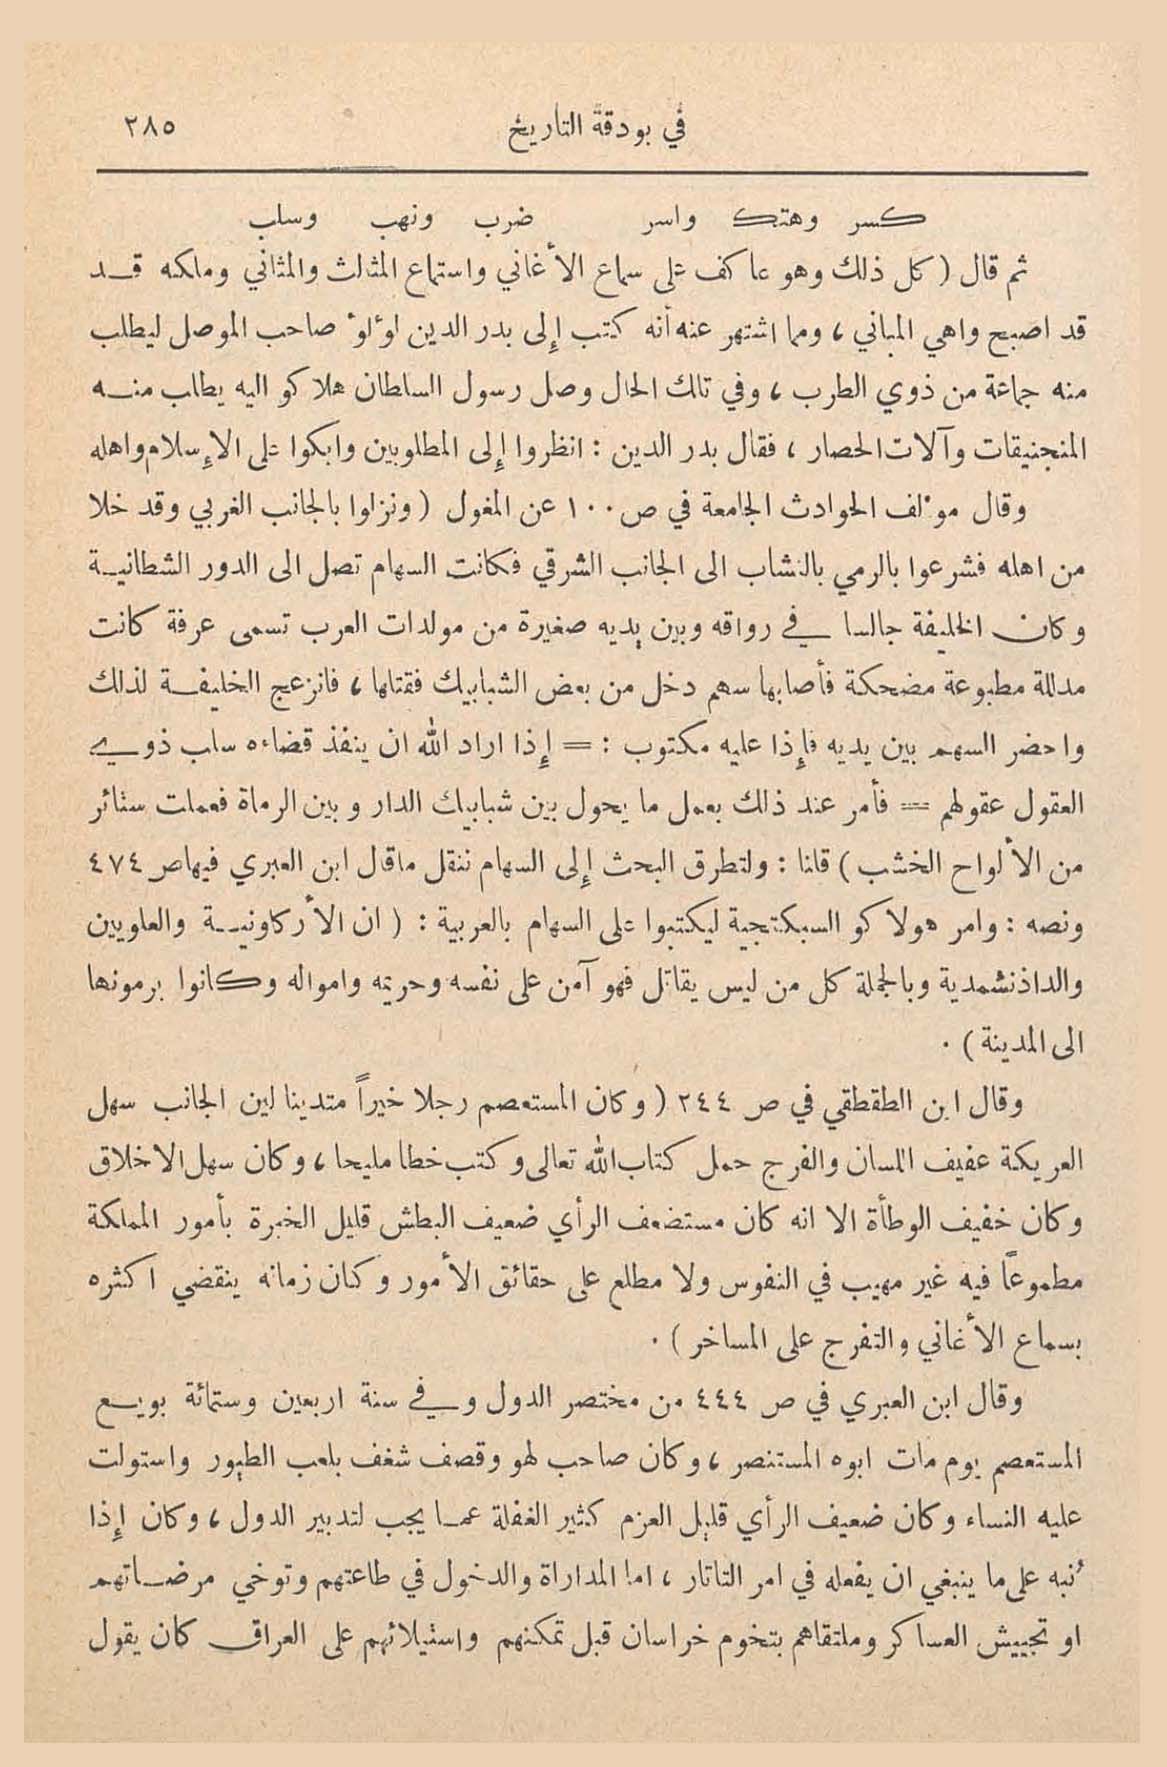 في بودقة التاريخ ٢٨٥
كسر وهتك واسر ضرب ونهب وسلب
ثم قال ( كل ذلك وهو عاكف على سماع الأغاني واستماع المثالث والمثاني وملكه قـد
قد اصبح واهي المباني ، ومما اشتهر عنه أنه كتب إلى بدر الدين لؤلؤ صاحب الموصل ليطلب
منه جماعة من ذوي الطرب ، وفي تلك الحال وصل رسول السلطان هلاكو اليه يطلب منـه
المنجنيقات وآلات الحصار ، فقال بدر الدين : انظروا إلى المطلوبين وابكوا على الإسلام واهله
وقال مؤلف الحوادث الجامعة في ص ١٠٠ عن المغول ( ونزلوا بالجانب الغربي وقد خلا
من اهله فشرعوا بالرمي بالنشاب الى الجانب الشرقي فكانت السهام تصل الى الدور الشطانيـة
وكان الخليفة جالسا في رواقه وبين يديه صغيرة من مولدات العرب تسمى عرفة كانت
مدللة مطبوعة مضحكة فأصابها سهم دخل من بعض الشبابيك فقتلها ، فانزعج الخليفـة لذلك
واحضر السهم بين يديه فإذا عليه مكتوب : = إذا اراد الله ان ينفذ قضاءه سلب ذوي
العقول عقولهم = فأمر عند ذلك بعمل ما يحول بين شبابيك الدار وبين الرماة فعملت ستائر
من الألواح الخشب ) قلنا : ولتطرق البحث إلى السهام ننقل ماقال ابن العبري فيها ص ٤٧٤
ونصه : وامر هولاكو السبكتجية ليكتبوا على السهام بالعربية : ( ان الأركاونيـة والعلويين
والداذنشمدية وبالجملة كل من ليس يقاتل فهو آمن على نفسه وحريمه وامواله وكانوا يرمونها
الى المدينة ) .
وقال ابن الطقطقي في ص ٢٤٤ ( وكان المستعصم رجلا خيراً متدينا لين الجانب سهل
العريكة عفيف اللسان والفرج حمل كتاب الله تعالى وكتب خطا مليحا ، وكان سهل الاخلاق
وكان خفيف الوطأة الا انه كان مستضعف الرأي ضعيف البطش قليل الخبرة بأمور المملكة
مطموعاً فيه غير مهيب في النفوس ولا مطلع على حقائق الأمور وكان زمانه ينقضي اكثره
بسماع الأغاني والتفرج على المساخر ) .
وقال ابن العبري في ص ٤٤٤ من مختصر الدول وفي سنة اربعين وستمائة بويـع
المستعصم يوم مات ابوه المستنصر ، وكان صاحب لهو وقصف شغف بلعب الطيور واستولت
عليه النساء وكان ضعيف الرأي قليل العزم كثير الغفلة عمـا يجب لتدبير الدول ، وكان إذا
نُبه على ما ينبغي ان يفعله في امر التاتار ، اما المداراة والدخول في طاعتهم وتوخي مرضـاتهم
او تجييش العساكر وملتقاهم بتخوم خراسان قبل تمكنهم واستيلائهم على العراق كان يقول